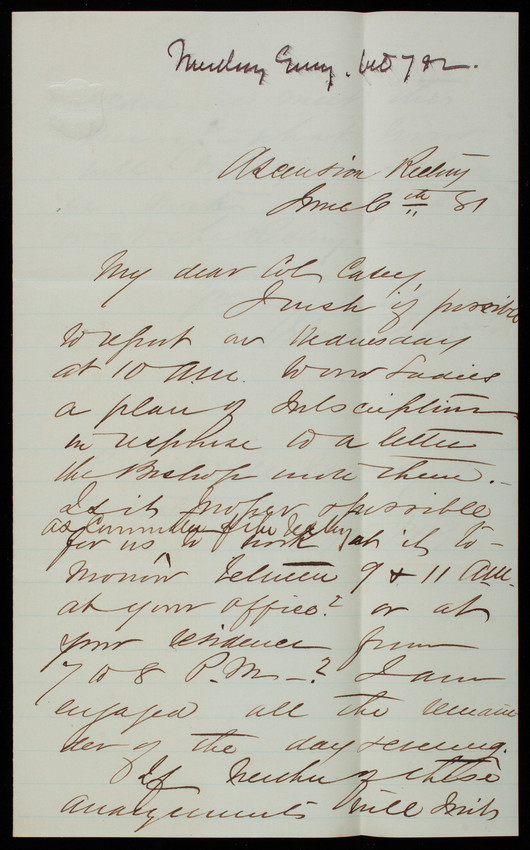 Ascension Rectory
June 6th 81
My dear Col Casey,
I wish if possible
to report on Wednesday
at 10 A.M. to our Ladies
a plan of Subscription
in response to a letter
the Bishop wrote them.
Is it proper & possible
as Committee of the Vestry
for us to work at it to-
morrow between 9 & 11 A.M.
at your office? or at
your residence from
7 to 8 P.M.? I am
engaged all the remain
der of the day & evening.
If neither of these
arrangements will suit